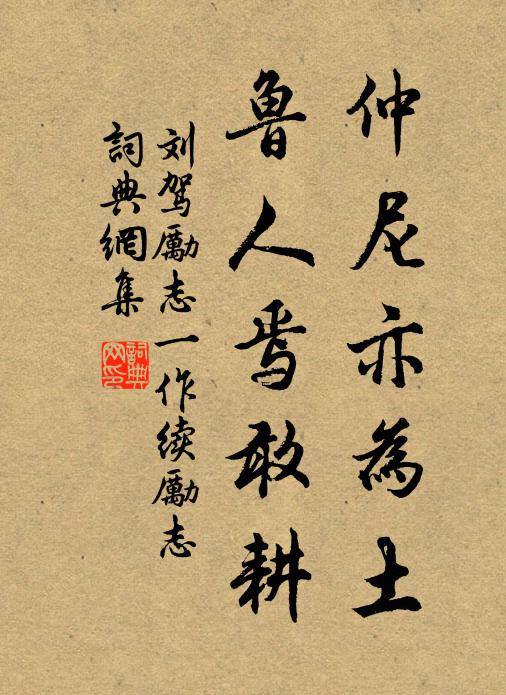 仲尼亦為土
魯人焉敢耕
刘駕勵志一作续勵志
詞典網集
詞典
网印